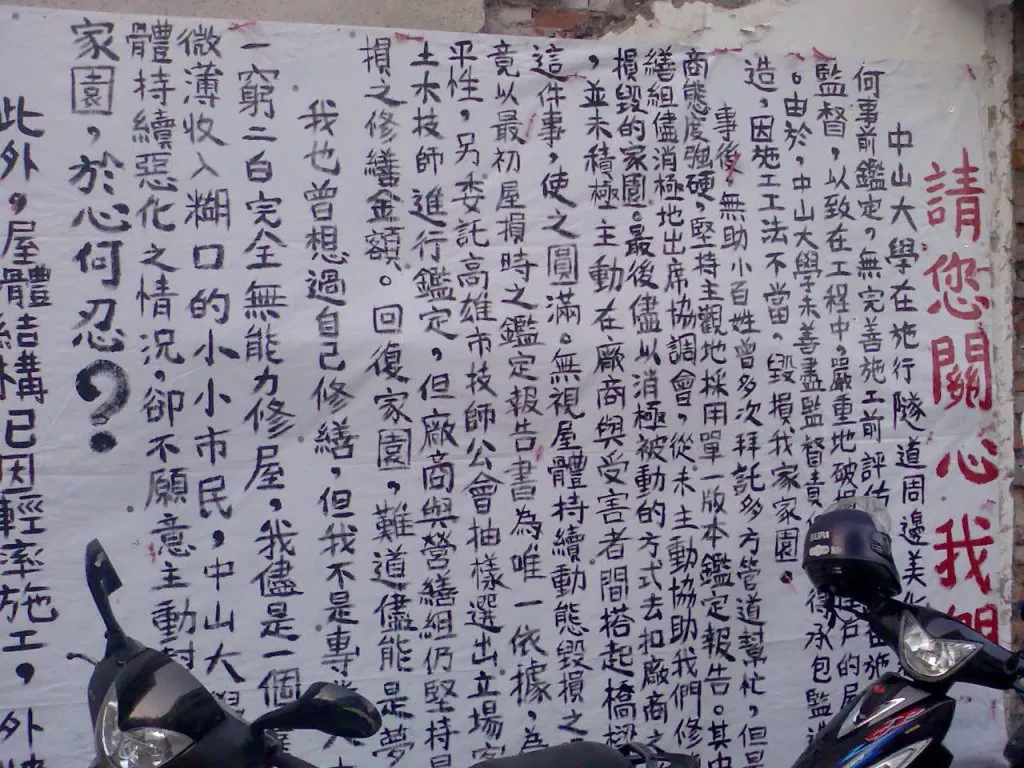 請您關心我們
中山大學在施行隧道周邊美化
何事前鑑定，無完善施工前評估
監督，以致在工程中嚴重地破損 的房
。由於，中山大學未善盡監督責 得承包監造
造，因施工工法不當，毀損我家家園。
事後，無助小百姓曾多次拜託多方管道幫忙，但是
商態度強硬，堅持主觀地採用單一版本鑑定報告。其中
繕組儘消極地出席協調會，從未主動協助我們修
損毀的家園。最後儘以消極被動的方式去扣廠商之
，並未積極主動在廠商與受害者間搭起橋樑
這件事，使之圓滿。無視屋體持續動態毀損之
竟以最初屋損時之鑑定報告書為唯一依據，為
平性，另委託高雄市技師公會抽樣選出立場客
土木技師進行鑑定，但廠商與營繕組仍堅持是
損之修繕金額。回復家園，難道儘能是夢
我也曾想過自己修繕，但我不是專業人士
一窮二白完全無能力修屋，我儘是一個
微薄收入糊口的小小市民，中山大學
體持續惡化之情況，卻不願意主動
家園，於心何忍？
此外，屋體結構已因輕率施工，外
SUPA